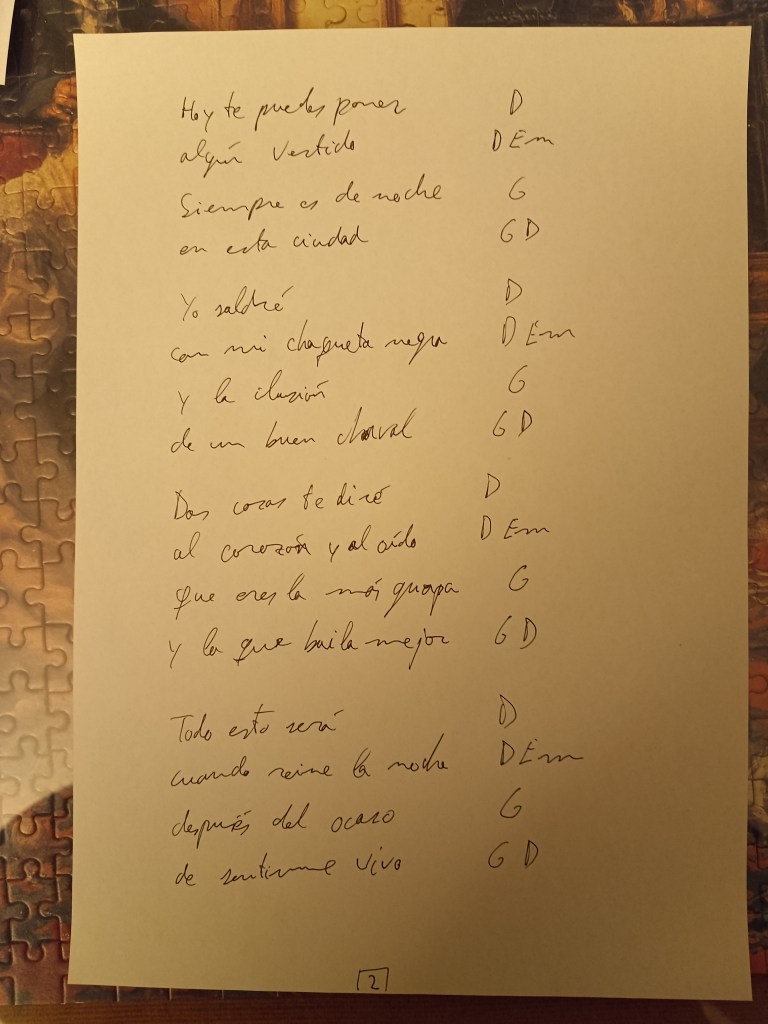 Hoy te puedes poner D
algún vestido D Em
Siempre es de noche G
en esta ciudad G D
Yo saldré D
con mi chaqueta negra D Em
y la ilusión G
de un buen chaval G D
Dos cosas te diré D
al corazón y al oído D Em
que eres la más guapa G
y la que baila mejor G D
Todo esto será D
cuando reine la noche D Em
después del ocaso G
de sentirme vivo G D
2